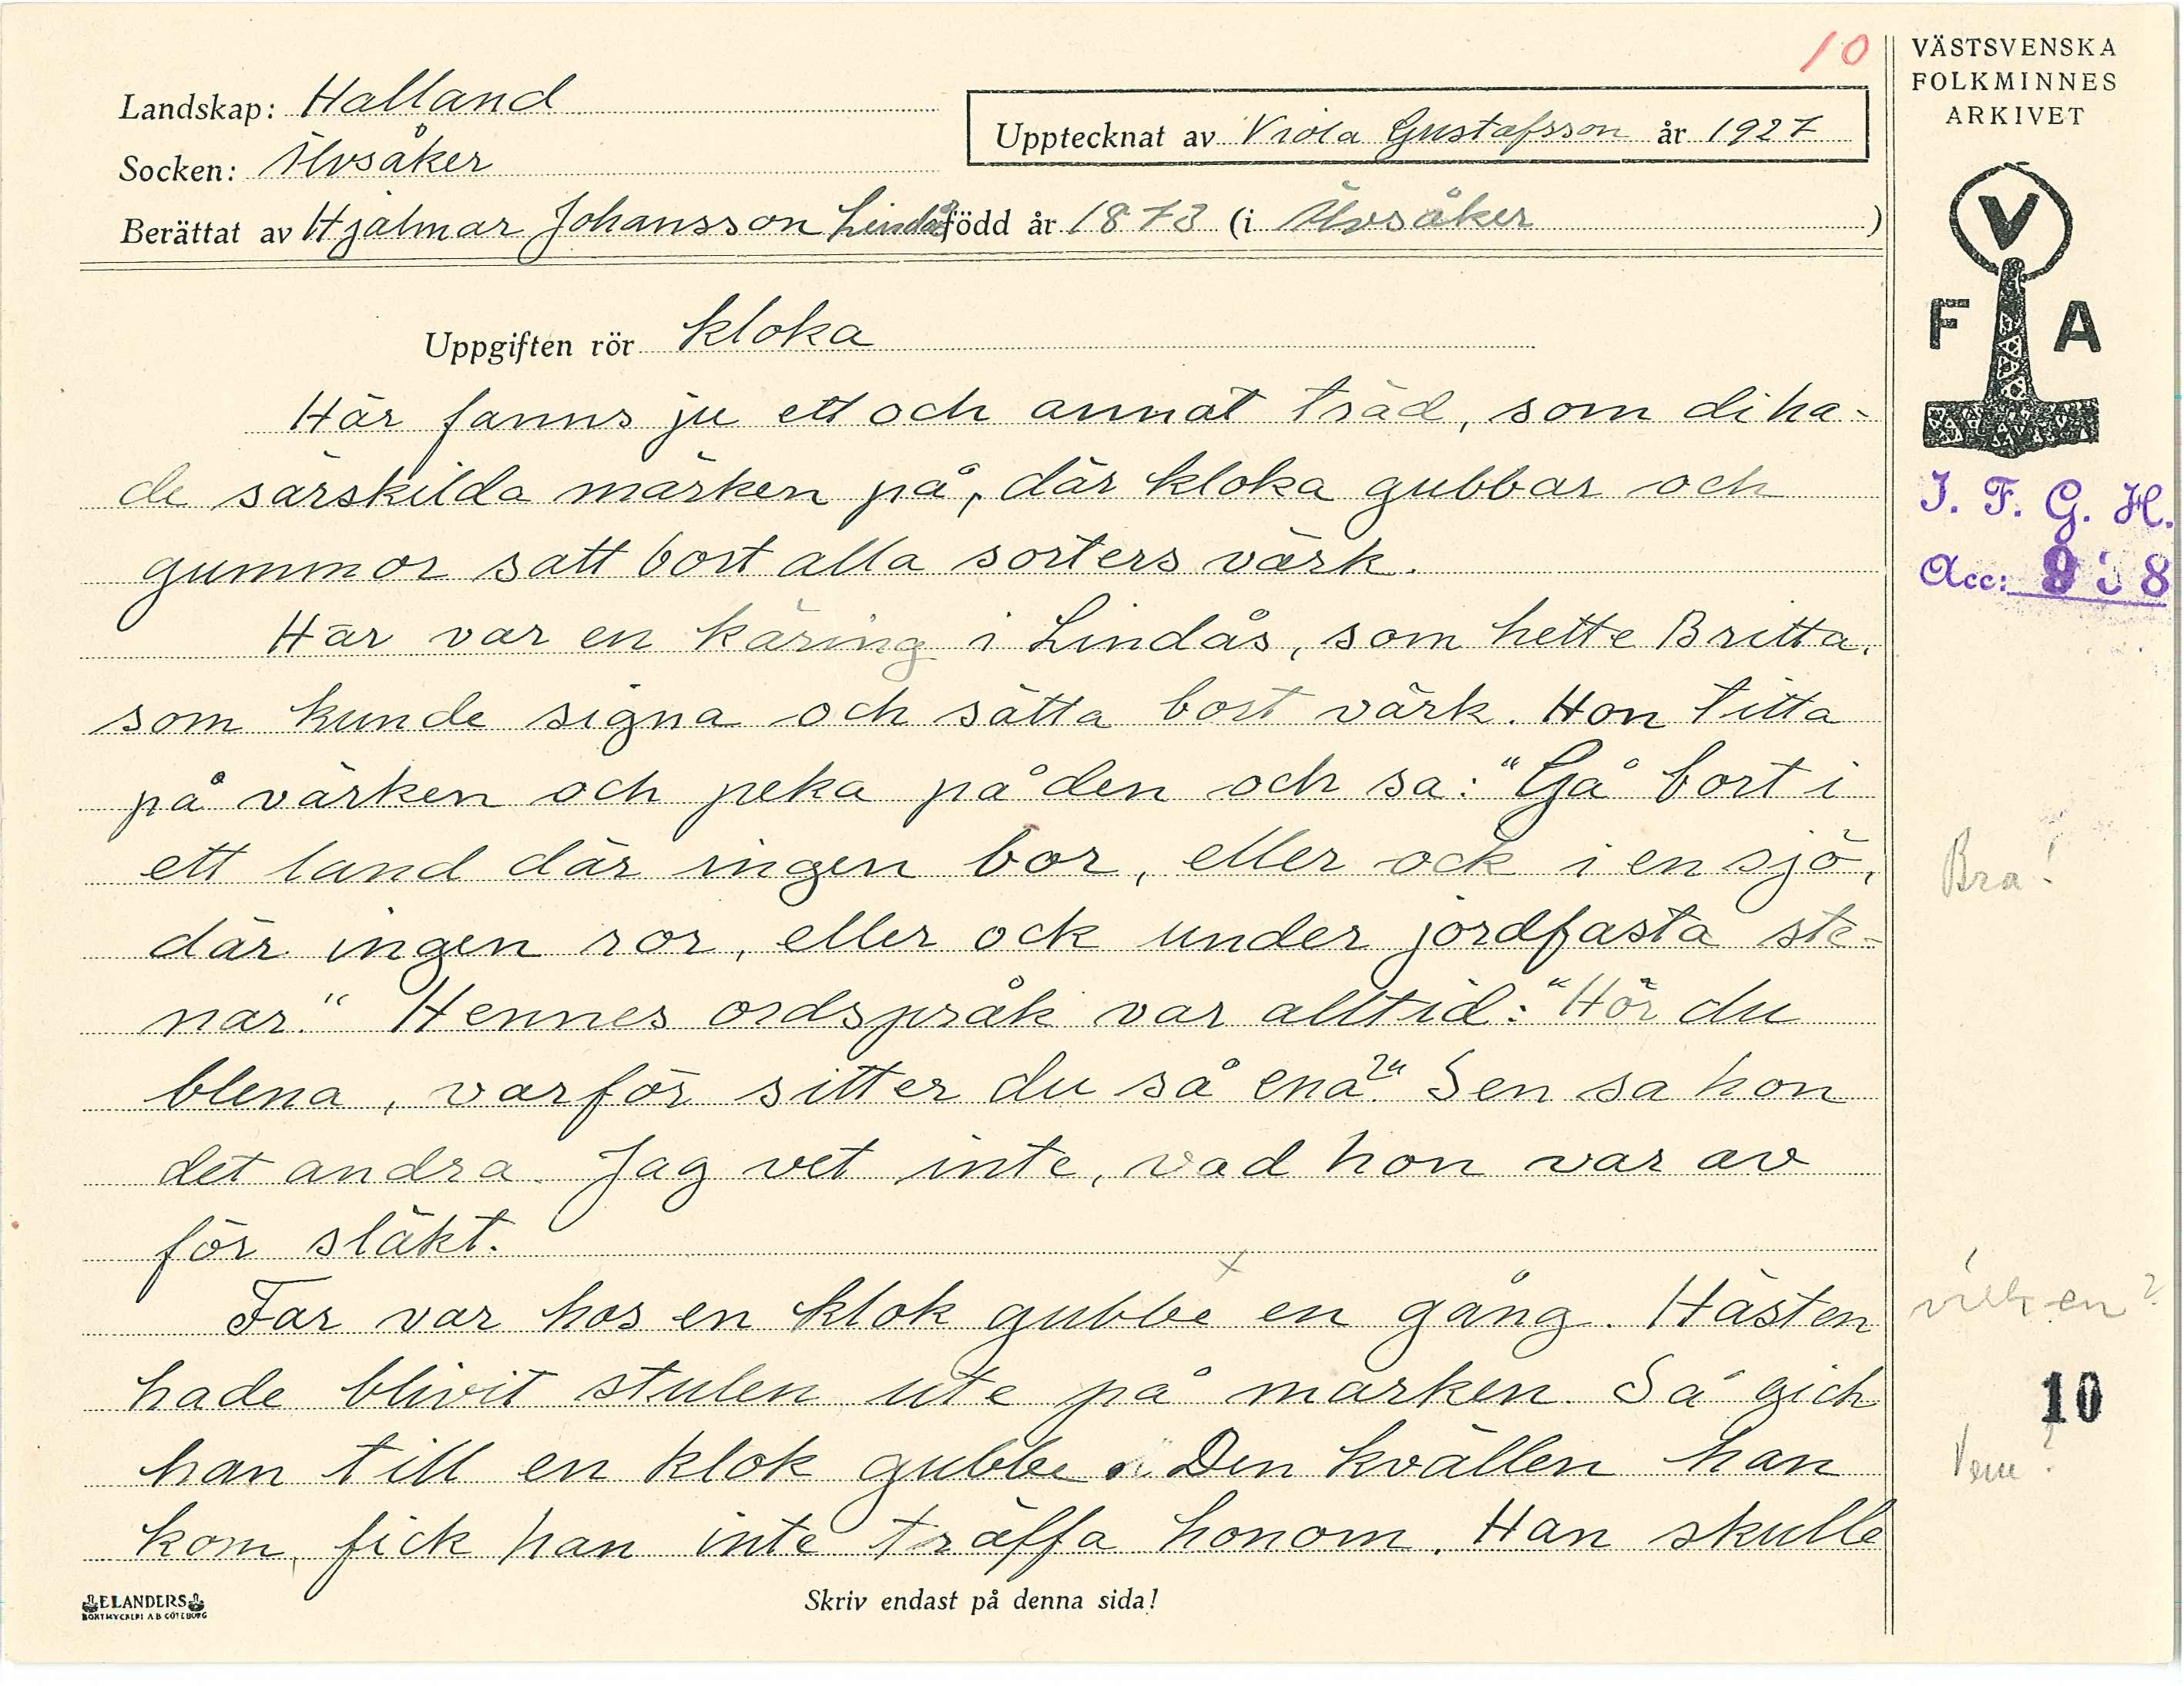 10
VÄSTSVENSKA
FOLKMINNES
ARKIVET
Landskap: Halland
Upptecknat av Viola Gustafsson år 1927
Socken: Älvsåker
Berättat av Hjalmar Johansson Lindås född år 1873 (i Älvsåker )
V
F A
Uppgiften rör kloka
Här fanns ju ett och annat träd, som di ha-
de särskilda märken på, där kloka gubbar och
gummor satt bort alla sorters värk.
Här var en käring i Lindås, som hette Britta,
som kunde signa och sätta bort värk. Hon titta
på värken och peka på den och sa: "Gå bort i
ett land där ingen bor, eller ock i en sjö,
där ingen ror, eller ock under jordfasta ste-
nar." Hennes ordspråk var alltid: "Hör du
blena, varför sitter du så ena?" Sen sa hon
det andra. Jag vet inte, vad hon var av
för släkt.
Far var hos en klok gubbe x en gång. Hästen
hade blivit stulen ute på marken. Så gick
han till en klok gubbe. Den kvällen han
kom, fick han inte träffa honom. Han skulle
I. F. G. H.
Acc: 938
Bra!
vilken?
10
Vem?
ELANDERS
BOKTRYCKERI A B GÖTEBORG
Skriv endast på denna sida!